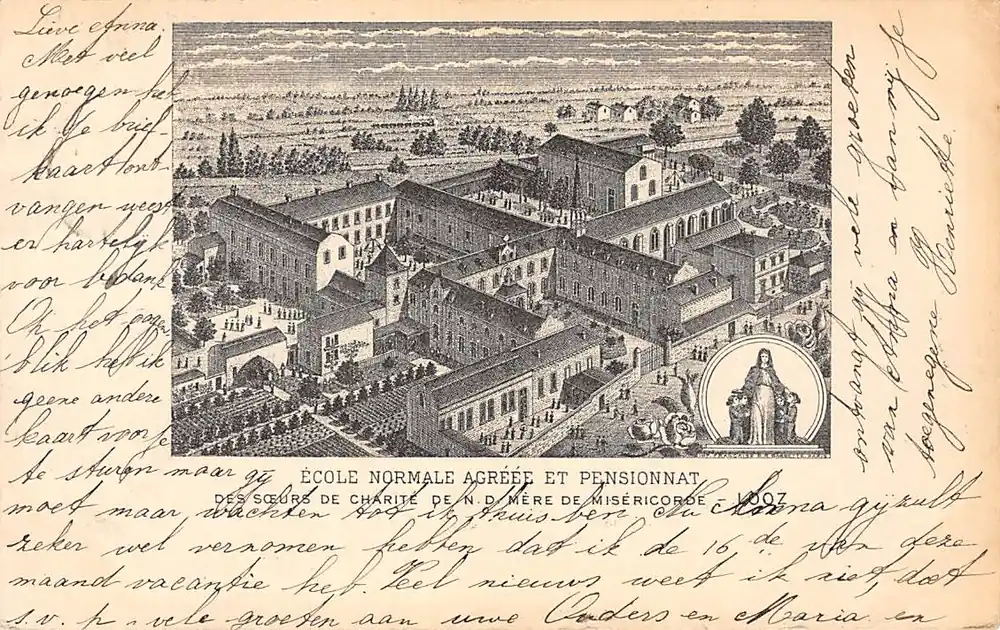 Lieve Anna.
Met veel
genoegen heb
ik je brief-
kaart ont-
vangen weest
er hartelijk
voor bedankt
Op het oogen
blik heb ik
geene andere
kaart voor je
te sturen maar gij
moet maar wachten tot ik thuis ben. Nu Anna gij zult
zeker wel vernomen hebben dat ik de 16de van deze
maand vacantie heb. Veel nieuws weet ik niet, doet
s.v.p. vele groeten aan uwe Ouders en Maria en
ontvangt gij vele groeten
van en van mij je
toegenegene Henriette.
ÉCOLE NORMALE AGRÉÉE ET PENSIONNAT
DES SŒURS DE CHARITÉ DE N.D. MÈRE DE MISÉRICORDE - LOOZ